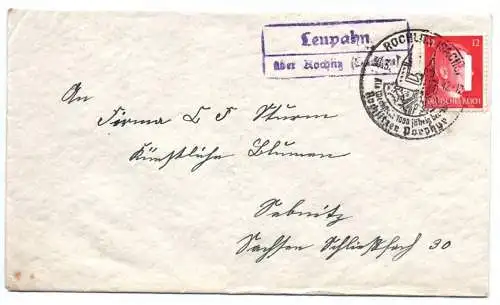 Leupahn
über Rochlitz
ROCHLITZ (SACHS)
12
DEUTSCHES REICH
Rochlitzer Porphyr
An
Firma L F Sturm
Künstliche Blumen
Sebnitz
Sachsen Schließfach 30